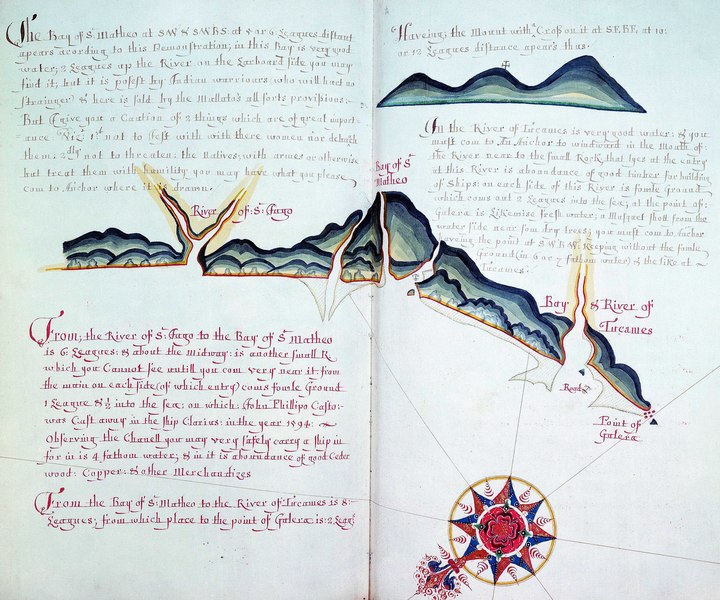 The Bay of St. Matheo at SW & SWBS: at 5 or 6 Leagues distant
apears acording to this Demonstration, in this Bay is very good
water; 2 Leagues up the River on the Larboard side you may
find it; but it is posest by Indian warriours who will had no
straingers & here is sold by the Mullato's all sorts provisions:
But I give you a Caution of 2 things which are of great import-
=ance Viz. 1st. not to Jest with there women nor
them. 2dly not to threaten the Natives with armes or otherwise
but treat them with humility you may have what you please
Com to Anchor where it is drawn.
River of: St. Jago
From; the River of St. Jago to the Bay of St. Matheo
is 6: Leagues: & about the midway: is another small R.
which you Cannot see untill you com very near it: from
the main on each side (of which entry) coms fowle Ground
1 League & ½ into the sea; on which: John Phillipo Casto:-
was Cast away in the ship Clarius: in the year 1594: ~
Observing the Chanell you may very safely carry a ship in
for in is 4 fathom water; & in it is aboundance of good Ceder
wood: Copper: & other Merchandizes
From the Bay of St: Matheo to the River of: Tucames is 8:
Leagues; from which place to the point of Galera is: 2 Leags
Haveing; the Mount with a Cross on it at SEBE, at 10:
or 12 Leagues distance apears thus.
Bay of St.
Matheo
In the River of Tucames is very good water; & you
must com to An Anchor to windward in the Mouth of:
the River near to the small Rock that lyes at the entry
at this River is aboundance of good timber for building
of Ships; on each side of this River is fowle Ground
which coms out 2 Leagues into the sea; at the point of:
Galera is Likewise fresh water; a Musquet shott from the
water side near som dry trees; you must com to Anchor
haveing the point at SWBW. keeping without the fowle
Ground (in 6 or 7 fathom water) & the like at
Tucames.
Bay & River of
Tucames
Road
Point of
Galera